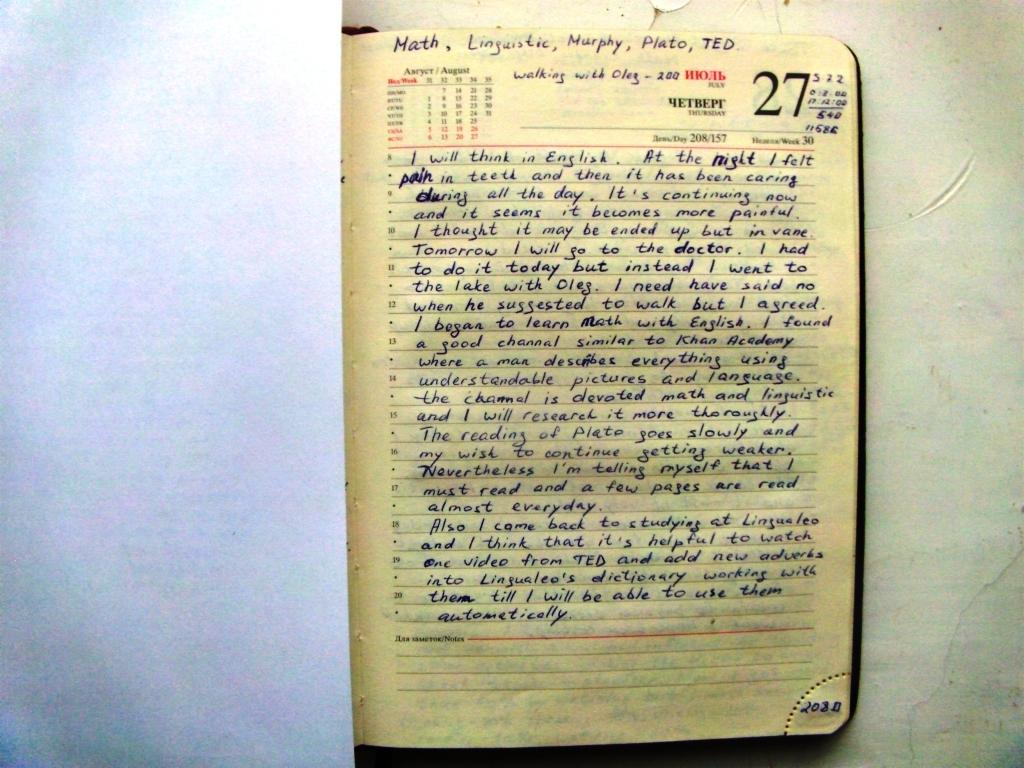 Math, Linguistic, Murphy, Plato, TED
Август / August
Нед/Week 31 32 33 34 35
ПН/MO 7 14 21 28
ВТ/TU 1 8 15 22 29
СР/WE 2 9 16 23 30
ЧТ/TH 3 10 17 24 31
ПТ/FR 4 11 18 25
СБ/SA 5 12 19 26
ВС/SU 6 13 20 27
Walking with Oleg - 200
ИЮЛЬ
JULY
ЧЕТВЕРГ
THURSDAY
27
5 22
0:2:00
17:12:00
540
11686
День/Day 208/157
Неделя/Week 30
8 I will think in English. At the night I felt
pain in teeth and then it has been caring
9 during all the day. It's continuing now
and it seems it becomes more painful.
10 I thought it may be ended up but in vane.
Tomorrow I will go to the doctor. I had
11 to do it today but instead I went to
the lake with Oleg. I need have said no
12 when he suggested to walk but I agreed.
I began to learn Math with English. I found
13 a good channal similar to Khan Academy
where a man describes everything using
14 understandable pictures and language.
the channal is devoted math and linguistic
15 and I will research it more thoroughly.
The reading of Plato goes slowly and
16 my wish to continue getting weaker.
Nevertheless I'm telling myself that I
17 must read and a few pages are read
almost everyday.
18 Also I came back to studying at Lingualeo
and I think that it's helpful to watch
19 one video from TED and add new adverbs
into Lingualeo's dictionary working with
20 them till I will be able to use them
automatically.
Для заметок/Notes